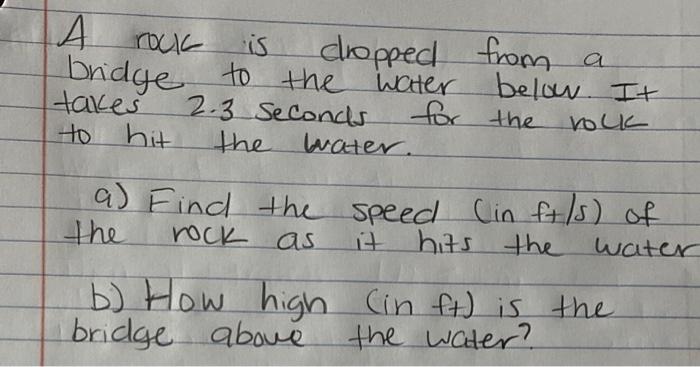 A rock is dropped from a
bridge to the water below. It
takes 2.3 Seconds for the rock
to hit the water.
a) Find the speed (in ft/s) of
the rock as it hits the water
b) How high (in ft) is the
bridge above the water?